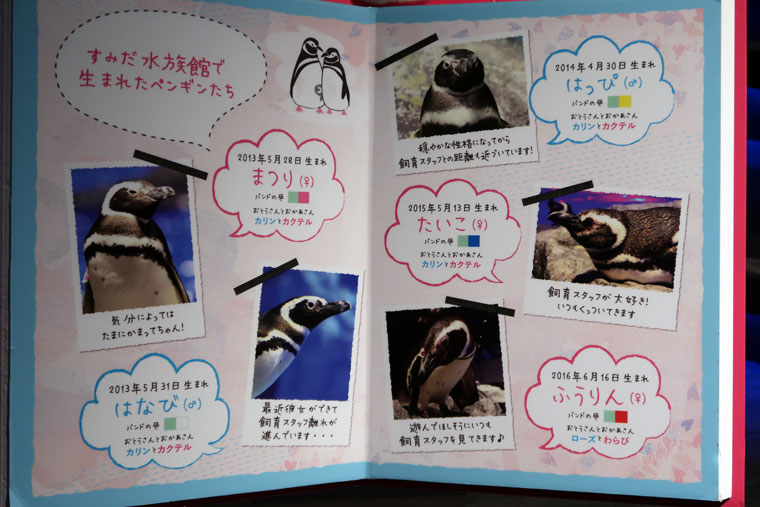 すみだ水族館で
生まれたペンギンたち
2013年5月28日 生まれ
まつり(♀)
バンドの色
おとうさんとおかあさん
カリンとカクテル
気分によっては
たまにかまってちゃん!
2013年5月31日 生まれ
はなび(♂)
バンドの色
おとうさんとおかあさん
カリンとカクテル
最近彼女ができて
飼育スタッフ離れが
進んでいます・・・
2014年4月30日 生まれ
はっぴ(♂)
バンドの色
おとうさんとおかあさん
カリンとカクテル
穏やかな性格になってから
飼育スタッフとの距離も近づいています!
2015年5月13日 生まれ
たいこ(♀)
バンドの色
おとうさんとおかあさん
カリンとカクテル
飼育スタッフが大好き!
いつもくっついてきます
2016年6月16日 生まれ
ふうりん(♀)
バンドの色
おとうさんとおかあさん
ローズとわらび
遊んでほしそうにいつも
飼育スタッフを見てきます♪